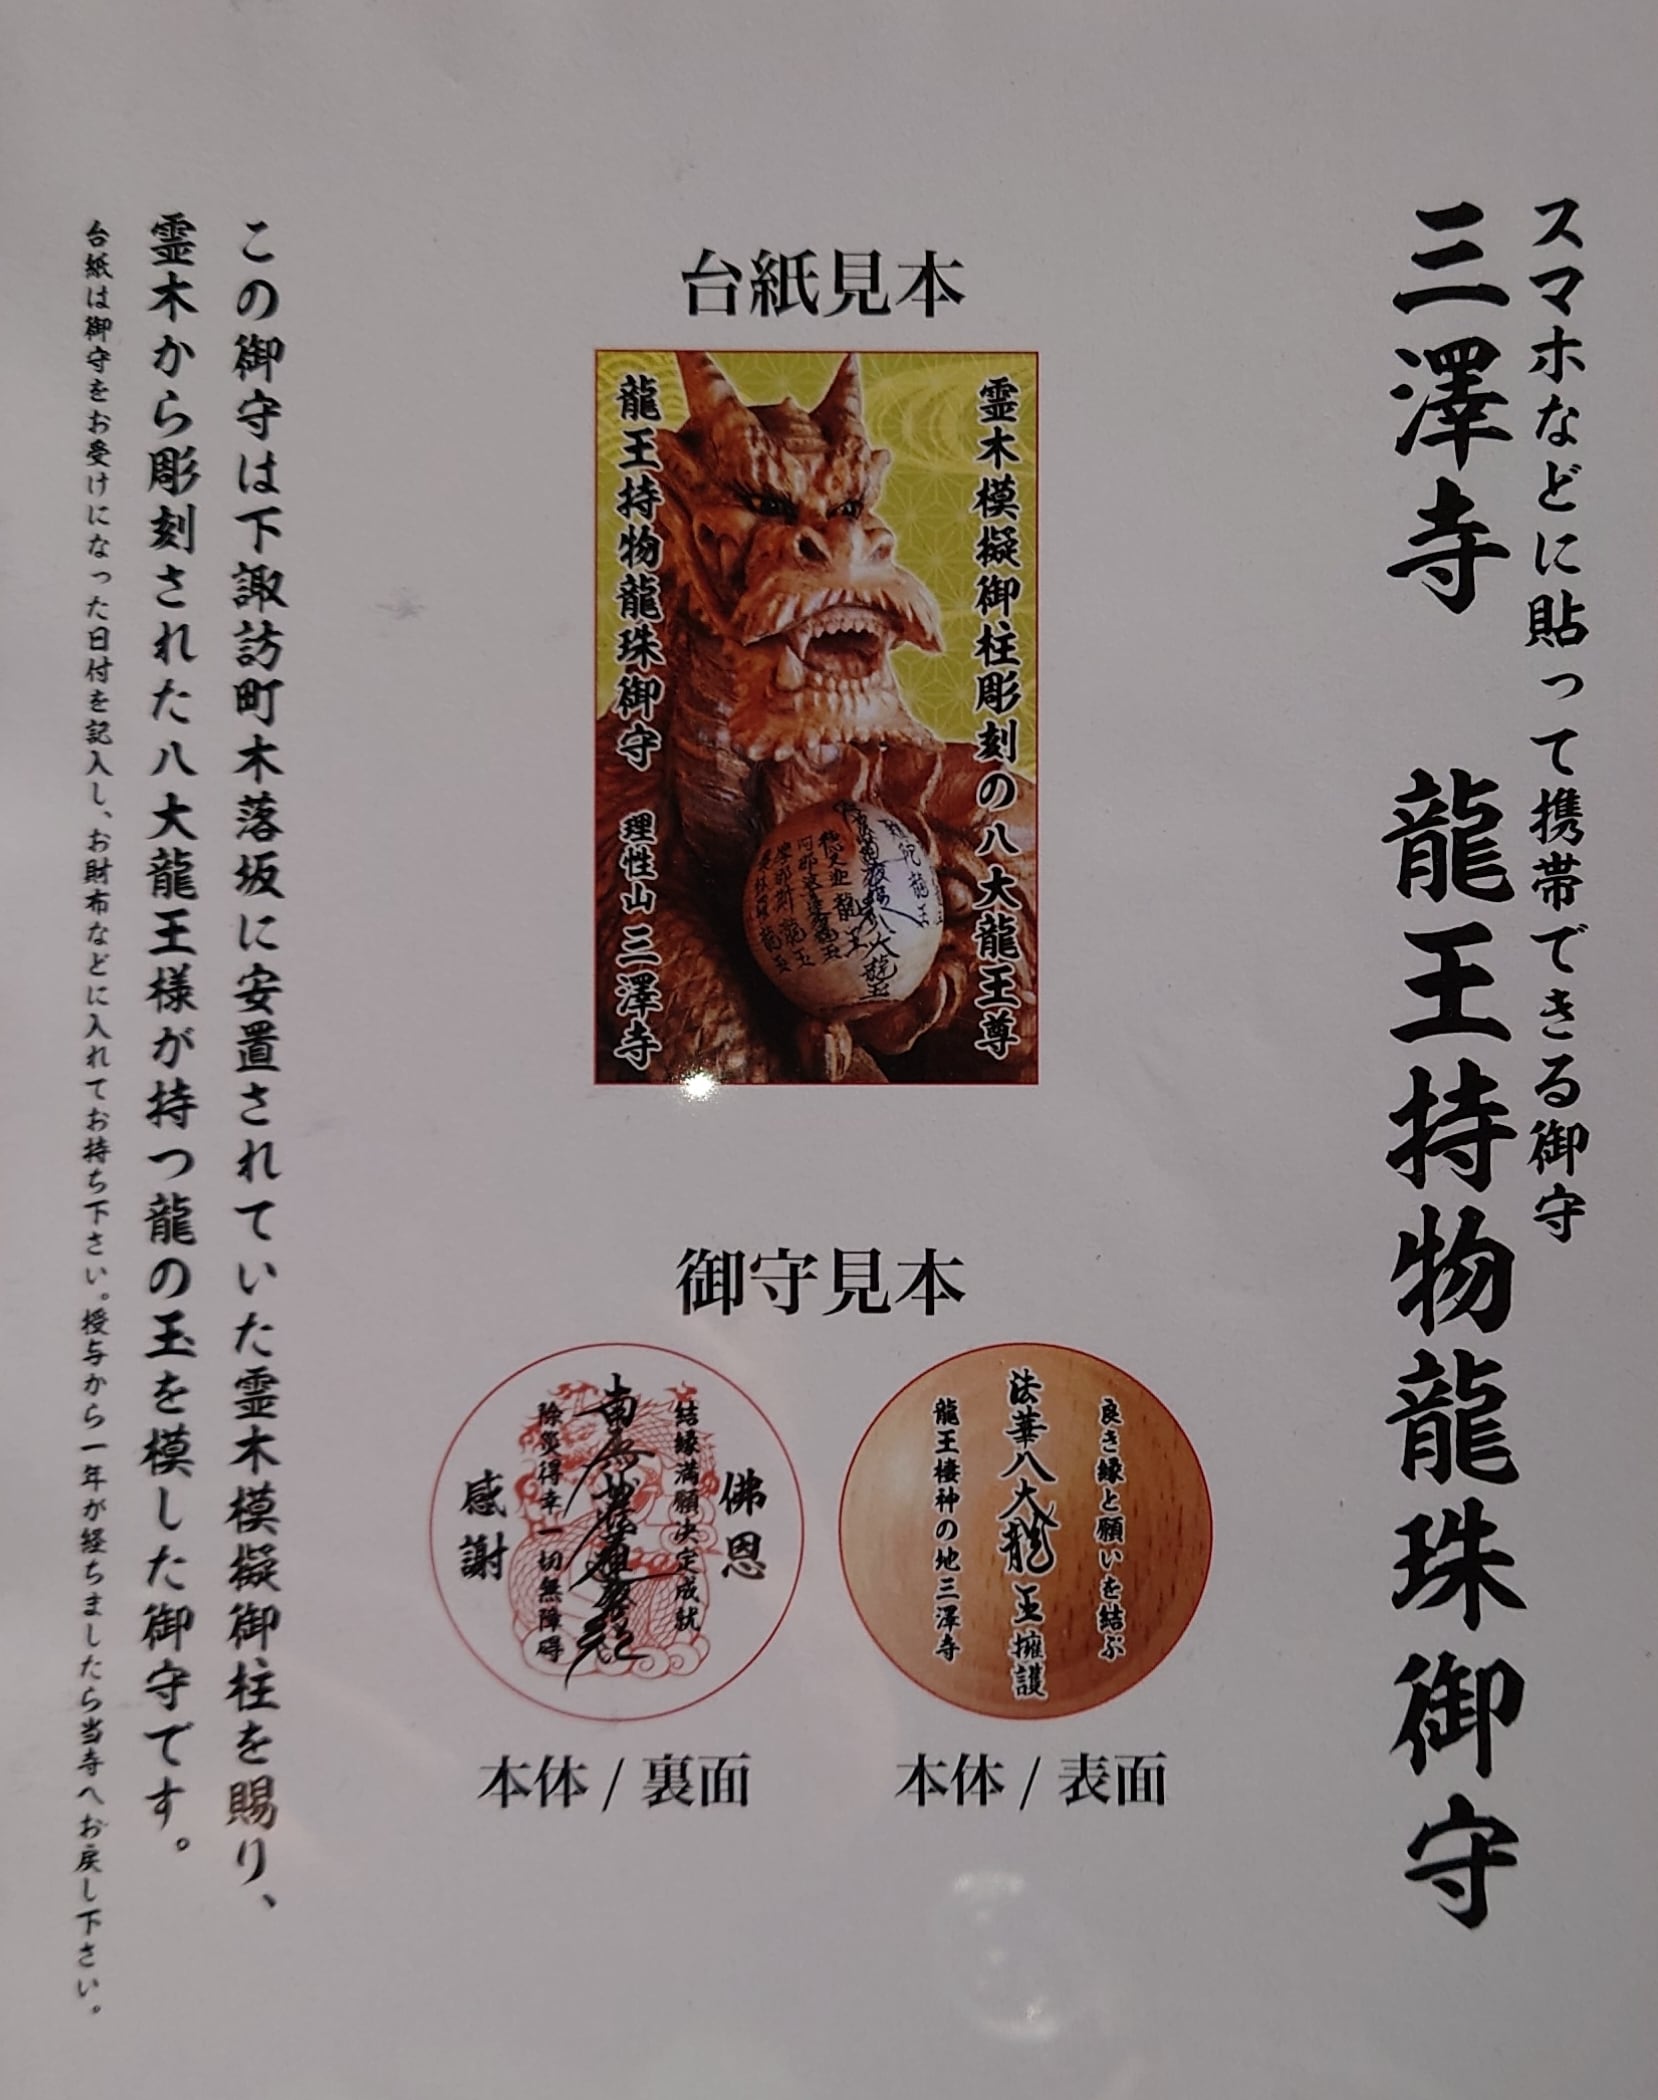 スマホなどに貼って携帯できる御守
三澤寺 龍王持物龍珠御守
台紙見本
霊木模擬御柱彫刻の八大龍王尊
龍王持物龍珠御守 理性山 三澤寺
御守見本
良き縁と願いを結ぶ
法華八大龍王擁護
龍王棲神の地三澤寺
本体/表面
佛恩
結縁満願決定成就
南無妙法蓮華経
除災得幸一切無障碍
感謝
本体/裏面
この御守は下諏訪町木落坂に安置されていた霊木模擬御柱を賜り、
霊木から彫刻された八大龍王様が持つ龍の玉を模した御守です。
台紙は御守をお受けになった日付を記入し、お財布などに入れてお持ち下さい。授与から一年が経ちましたら当寺へお戻し下さい。